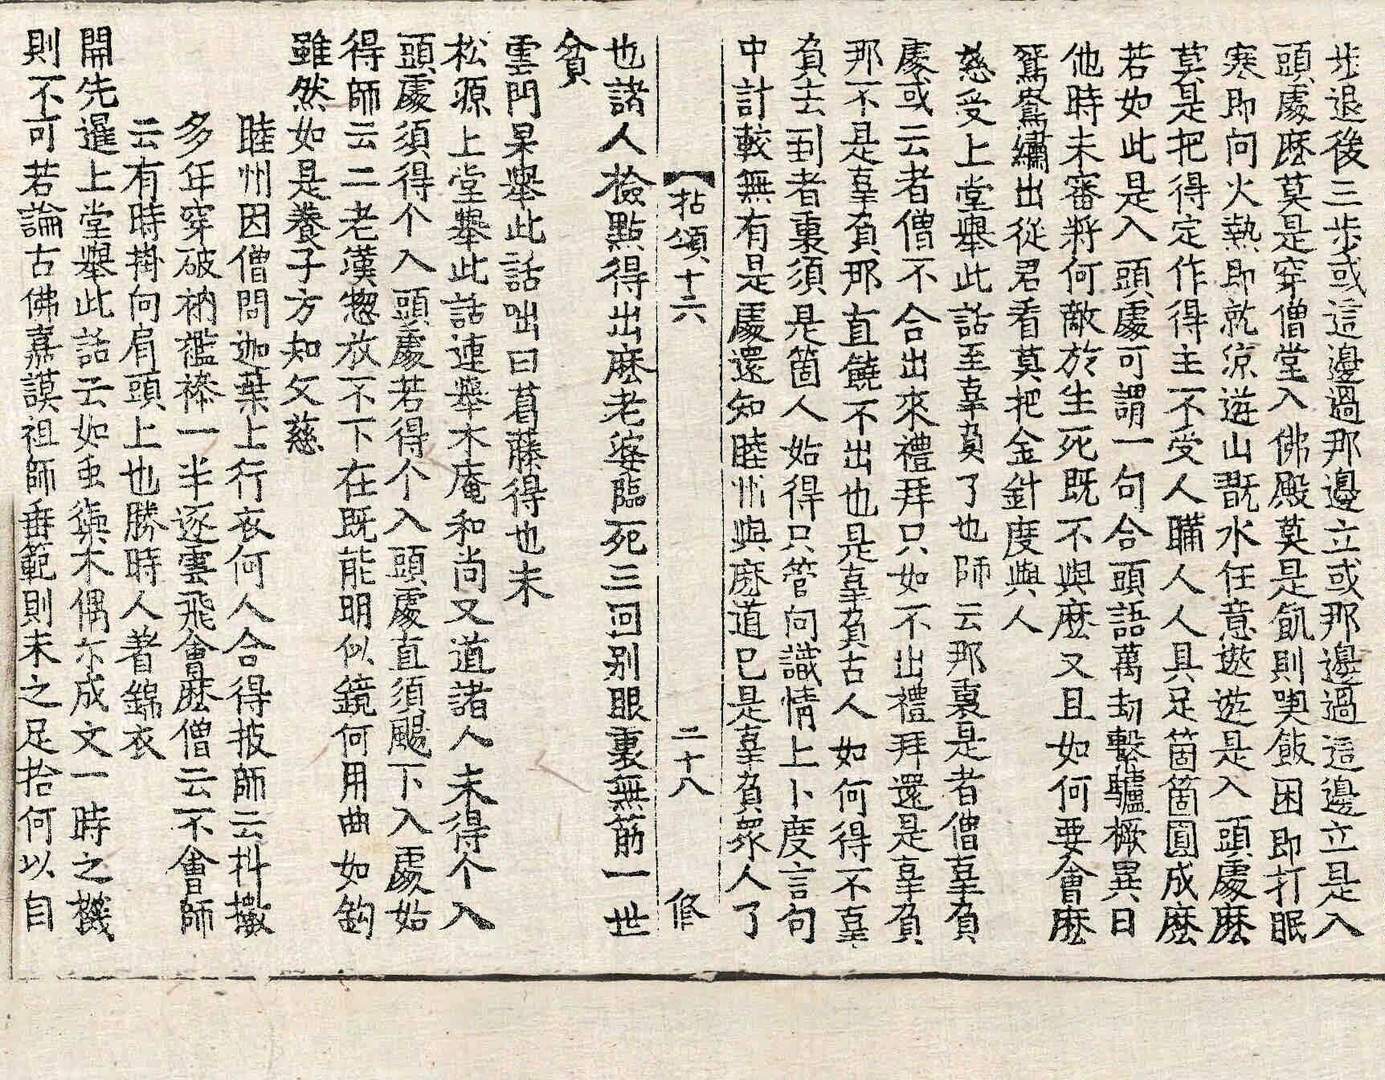 步退後三步或這邊過那邊立或那邊過這邊立是入
頭處麽莫是穿僧堂入佛殿莫是飢則喫飯困即打眠
寒即向火熱即就涼遊山翫水任意遨遊是入頭處麽
莫是把得定作得主不受人瞞人人具足箇箇圓成麽
若如此是入頭處可謂一句合頭語萬劫繫驢橛異日
他時未審將何敵於生死既不與麽又且如何要會麽
鴛鴦繡出從君看莫把金針度與人
慈受上堂舉此話至辜負了也師云那裏是者僧辜負
處或云者僧不合出來禮拜只如不出禮拜還是辜負
那不是辜負那直饒不出也是辜負古人如何得不辜
負去到者裏須是箇人始得只管向識情上卜度言句
中計較無有是處還知睦州與麽道已是辜負衆人了
【拈頌十六 二十八 修
也諸人撿點得出麽老婆臨死三回别眼裏無筋一世
貧
雲門杲舉此話咄曰葛藤得也未
松源上堂舉此話連舉木庵和尚又道諸人未得个入
頭處須得个入頭處若得个入頭處直須颺下入處始
得師云二老漢惣放不下在既能明似鏡何用曲如鈎
雖然如是養子方知父慈
睦州因僧問迦葉上行衣何人合得披師云抖擻
多年穿破衲襤褸一半逐雲飛會麽僧云不會師
云有時掛向肩頭上也勝時人著錦衣
開先暹上堂舉此話云如虫禦木偶尒成文一時之機
則不可若論古佛嘉謨祖師垂範則未之足拾何以自